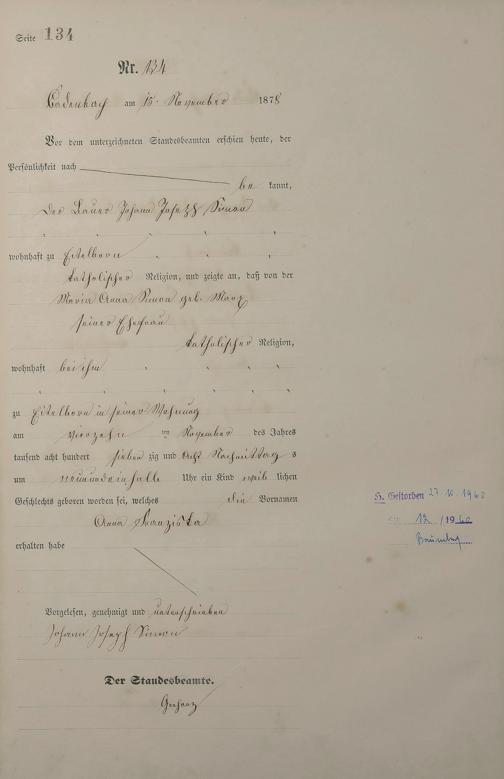 Seite 134
Nr. 134
Cadenbach am 15. November 1878
Vor dem unterzeichneten Standesbeamten erschien heute, der
Persönlichkeit nach
be kannt,
der Bauer Johann Joseph Simon
wohnhaft zu Eitelborn
katholischer Religion, und zeigte an, daß von der
Maria Anna Simon geb. Marx
seiner Ehefrau
katholischer Religion,
wohnhaft bei ihm
zu Eitelborn in seiner Wohnung
am vierzehn ten November des Jahres
tausend acht hundert sieben zig und acht Nachmittag s
um neun Uhr ein Kind weib lichen
Geschlechts geboren worden sei, welches die Vornamen
Anna Franziska
erhalten habe
Vorgelesen, genehmigt und unterschrieben
Johann Joseph Simon
Der Standesbeamte.
Gestorben 27.10.1960
12 /1960